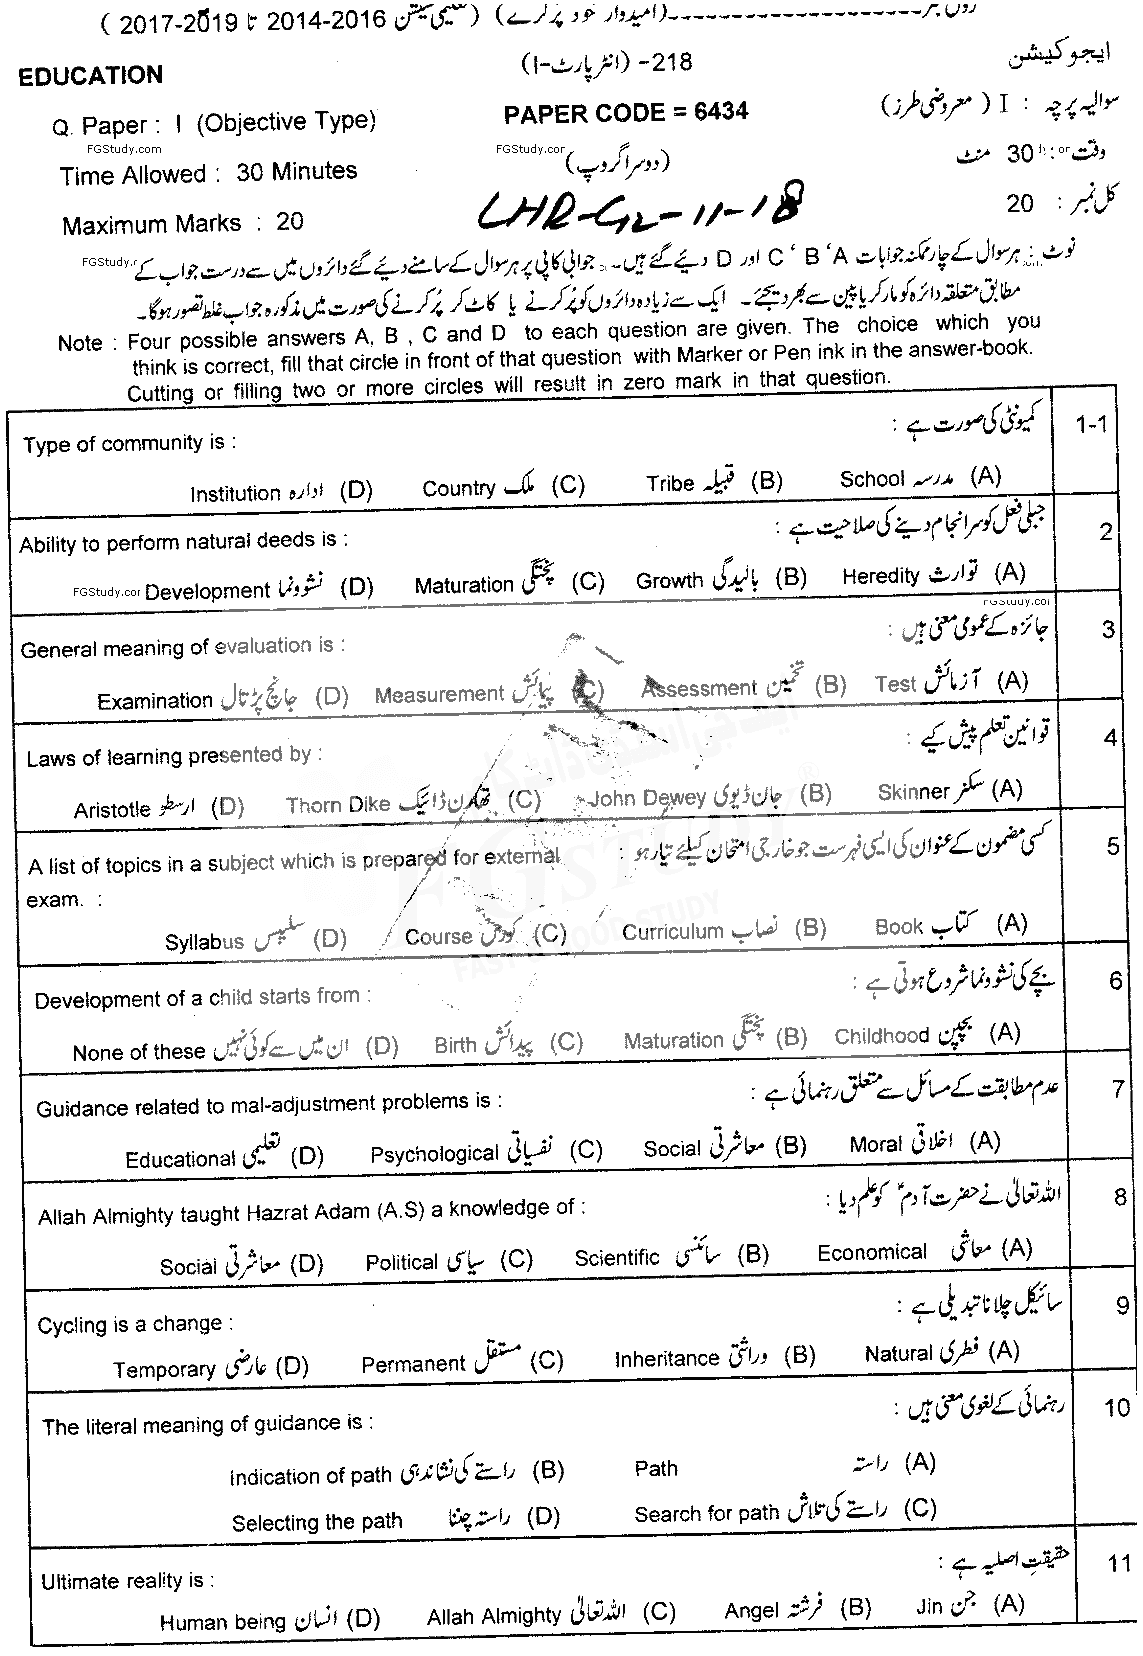 (تعلیمی سیشن 2016-2014 تا 2019-2017) (امیدوار خود پر کرے) رول نمبر
ایجوکیشن 218- (انٹر پارٹ-I) EDUCATION
سوالیہ پرچہ : I (معروضی طرز) PAPER CODE = 6434 Q. Paper : I (Objective Type)
FGStudy.com
وقت : 30 منٹ (دوسرا گروپ) FGStudy.com Time Allowed : 30 Minutes
کل نمبر : 20 LHR-G2-11-18 Maximum Marks : 20
نوٹ : ہر سوال کے چار ممکنہ جوابات A ' B ' C اور D دیئے گئے ہیں۔ جوابی کاپی پر ہر سوال کے سامنے دیئے گئے دائروں میں سے درست جواب کے
مطابق متعلقہ دائرہ کو مارکر یا پین سے بھر دیجئے۔ ایک سے زیادہ دائروں کو پُر کرنے یا کاٹ کر پُر کرنے کی صورت میں مذکورہ جواب غلط تصور ہوگا۔
Note : Four possible answers A, B , C and D to each question are given. The choice which you
think is correct, fill that circle in front of that question with Marker or Pen ink in the answer-book.
Cutting or filling two or more circles will result in zero mark in that question.
1-1 کمیونٹی کی صورت ہے :
Type of community is :
(A) مدرسہ School (B) قبیلہ Tribe (C) ملک Country (D) ادارہ Institution
2 جبلی فعل کو سرانجام دینے کی صلاحیت ہے :
Ability to perform natural deeds is :
(A) توارث Heredity (B) بالیدگی Growth (C) پختگی Maturation (D) نشوونما Development FGStudy.com
FGStudy.com
3 جائزہ کے عمومی معنی ہیں :
General meaning of evaluation is :
(A) آزمائش Test (B) تخمین Assessment (C) پیمائش Measurement (D) جانچ پڑتال Examination
4 قوانین تعلم پیش کیے :
Laws of learning presented by :
(A) سکنر Skinner (B) جان ڈیوی John Dewey (C) تھارن ڈائیک Thorn Dike (D) ارسطو Aristotle
5 کسی مضمون کے عنوان کی ایسی فہرست جو خارجی امتحان کیلئے تیار ہو :
A list of topics in a subject which is prepared for external
exam. :
(A) کتاب Book (B) نصاب Curriculum (C) کورس Course (D) سلیبس Syllabus
6 بچے کی نشوونما شروع ہوتی ہے :
Development of a child starts from :
(A) بچپن Childhood (B) پختگی Maturation (C) پیدائش Birth (D) ان میں سے کوئی نہیں None of these
7 عدم مطابقت کے مسائل سے متعلق رہنمائی ہے :
Guidance related to mal-adjustment problems is :
(A) اخلاقی Moral (B) معاشرتی Social (C) نفسیاتی Psychological (D) تعلیمی Educational
8 اللہ تعالیٰ نے حضرت آدمؑ کو علم دیا :
Allah Almighty taught Hazrat Adam (A.S) a knowledge of :
(A) معاشی Economical (B) سائنسی Scientific (C) سیاسی Political (D) معاشرتی Social
9 سائیکل چلانا تبدیلی ہے :
Cycling is a change :
(A) فطری Natural (B) وراثتی Inheritance (C) مستقل Permanent (D) عارضی Temporary
10 رہنمائی کے لغوی معنی ہیں :
The literal meaning of guidance is :
(A) راستہ Path (B) راستے کی نشاندہی Indication of path
(C) راستے کی تلاش Search for path (D) راستہ چننا Selecting the path
11 حقیقتِ اصلیہ ہے :
Ultimate reality is :
(A) جن Jin (B) فرشتہ Angel (C) اللہ تعالیٰ Allah Almighty (D) انسان Human being